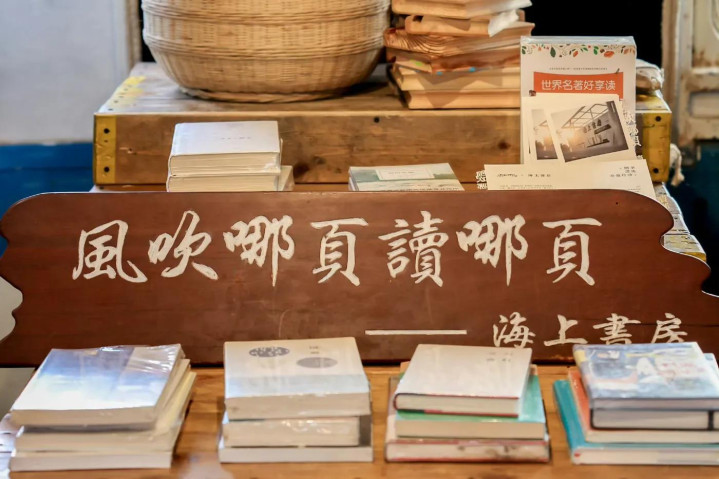 世界名著好享读
風吹哪頁讀哪頁
——海上書房